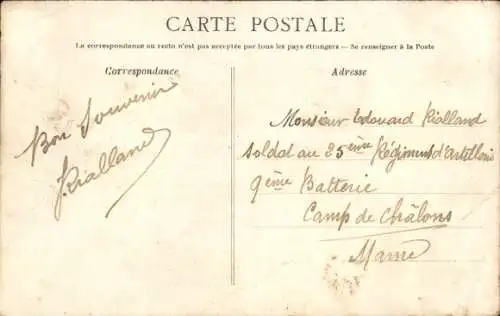 CARTE POSTALE
La correspondance au recto n'est pas acceptée par tous les pays étrangers — Se renseigner à la Poste
Correspondance
Bon Souvenir
Rialland
Adresse
Monsieur Edouard Rialland
soldat au 25ème Régiment d'Artillerie
9ème Batterie
Camp de Châlons
Marne